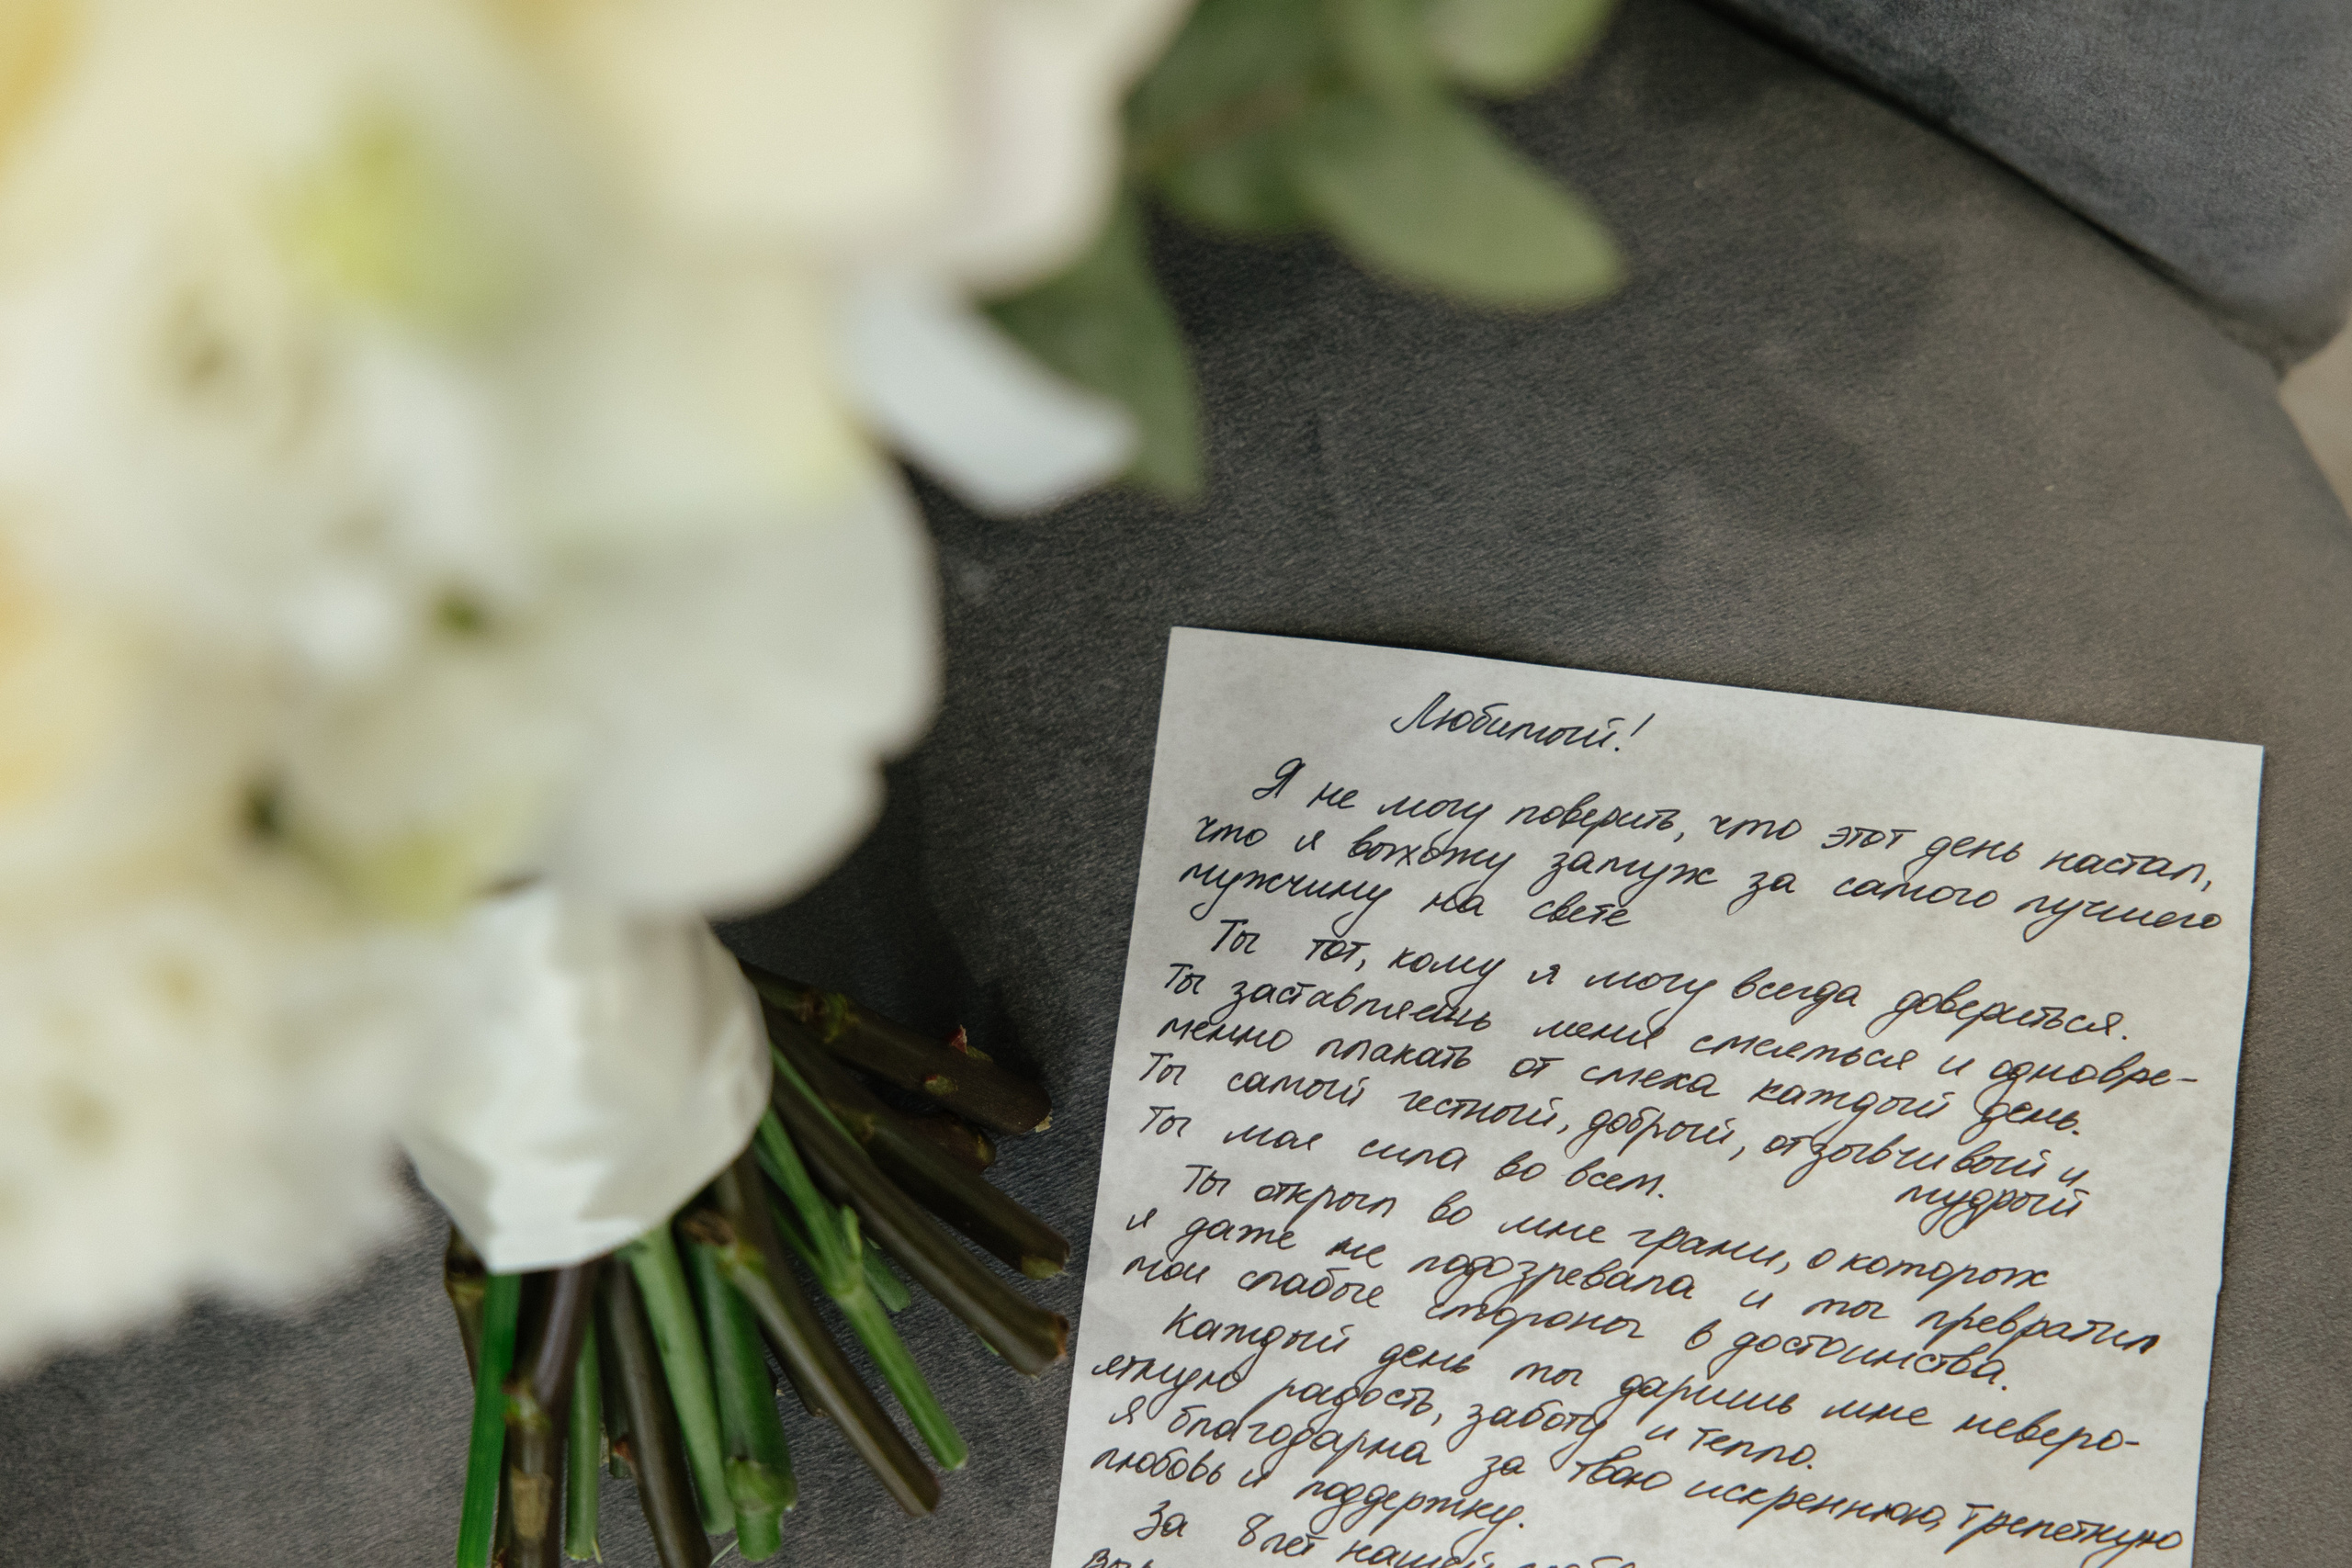 Любимый!
Я не могу поверить, что этот день настал,
что я выхожу замуж за самого лучшего
мужчину на свете
Ты тот, кому я могу всегда довериться.
Ты заставляешь меня смеяться и одновре-
менно плакать от смеха каждый день.
Ты самый честный, добрый, отзывчивый и
мудрый
Ты моя сила во всем.
Ты открыл во мне грани, о которых
я даже не подозревала и ты превратил
мои слабые стороны в достоинства.
Каждый день ты даришь мне неверо-
ятную радость, заботу и тепло.
Я благодарна за твою искреннюю, трепетную
любовь и поддержку.
За 8 лет нашей